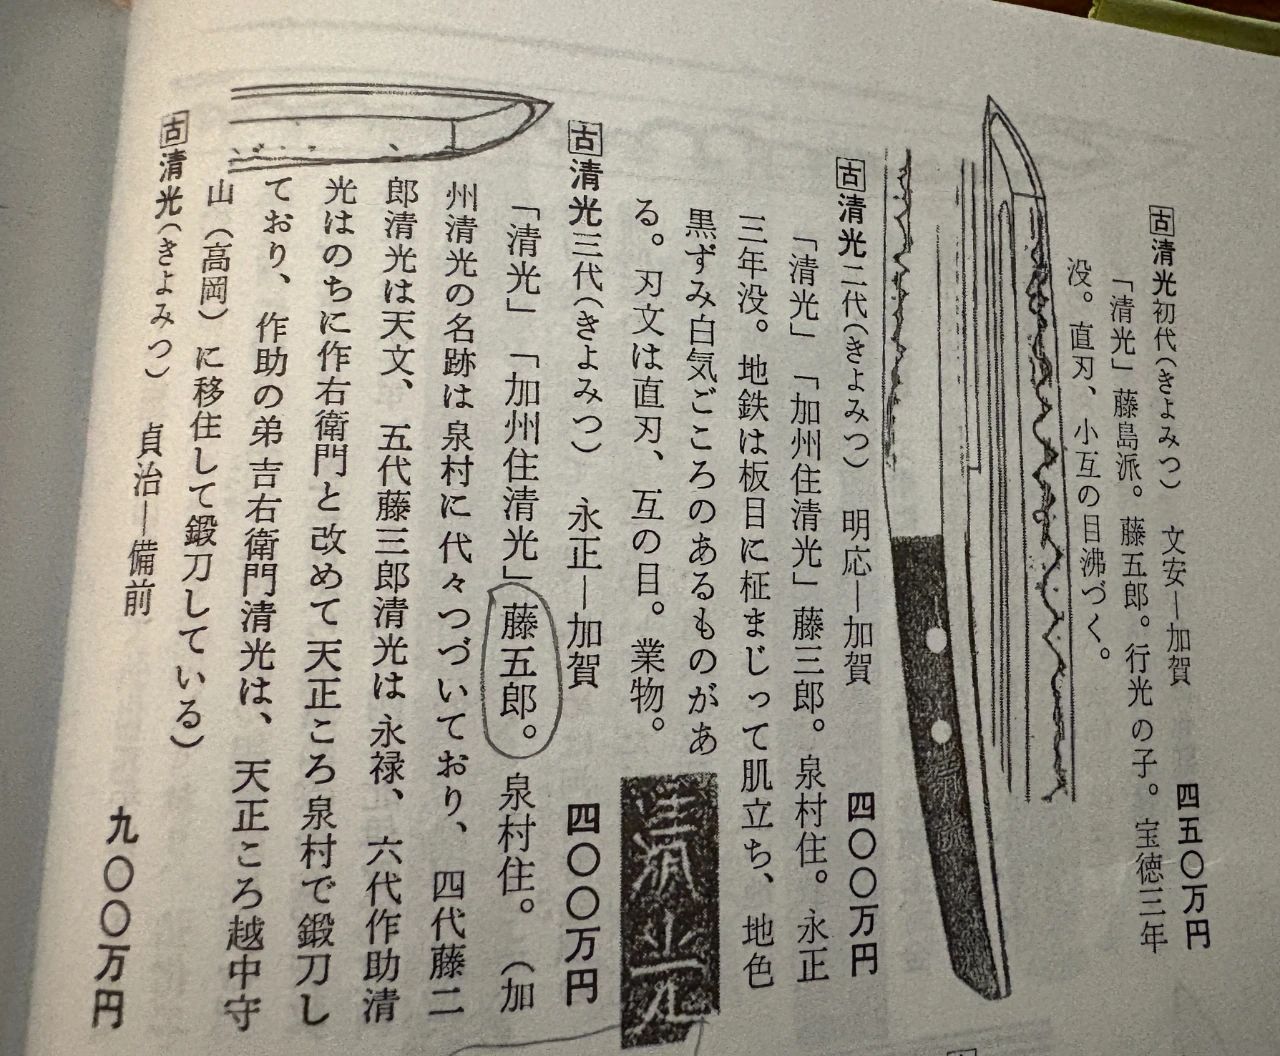 古清光初代（きよみつ）　文安―加賀　四五〇万円
「清光」藤島派。藤五郎。行光の子。宝徳三年
没。直刃、小互の目沸づく。
古清光二代（きよみつ）　明応―加賀　四〇〇万円
「清光」「加州住清光」藤三郎。泉村住。永正
三年没。地鉄は板目に柾まじって肌立ち、地色
黒ずみ白気ごころのあるものがあ
る。刃文は直刃、互の目。業物。
清光
古清光三代（きよみつ）　永正―加賀　四〇〇万円
「清光」「加州住清光」藤五郎。泉村住。（加
州清光の名跡は泉村に代々つづいており、四代藤二
郎清光は天文、五代藤三郎清光は永禄、六代作助清
光はのちに作右衛門と改めて天正ころ泉村で鍛刀し
ており、作助の弟吉右衛門清光は、天正ころ越中守
山（高岡）に移住して鍛刀している）
古清光（きよみつ）　貞治―備前　九〇〇万円